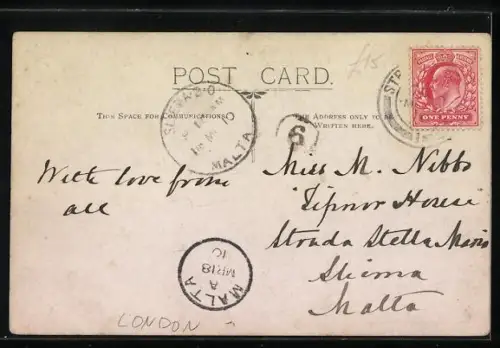 £15
POST CARD.
THIS SPACE FOR COMMUNICATION.
THE ADDRESS ONLY TO BE
WRITTEN HERE.
ONE PENNY
MALTA
6
With love from
all
Miss M. Nibbs
House
Strada Stella Maris
Sliema
Malta
MALTA
A
MR 18
10
LONDON